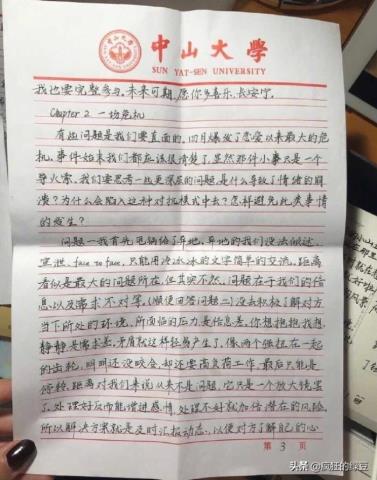 中山大學
SUN YAT-SEN UNIVERSITY
我也要完整参与。未来可期,愿你多喜乐,长安宁。
Chapter 2 一场危机
有些问题是我们要直面的。四月爆发了恋爱以来最大的危
机,事件始末我们都应该很清楚了。显然那件小事只是一个
导火索,我们要思考一些更深层的问题,是什么导致了情绪的崩
溃?为什么会陷入这种对抗模式中去?怎样避免此类事情
的发生?
问题一我首先甩锅给了异地,异地的我们没法做这
宣泄,face to face,只能用冷冰冰的文字简单的交流。距离
看似是最大的问题所在,但其实不然。问题在于我们的信
息以及需求不对等,(顺便回答问题二)没去积极了解对方
当下所处的环境,所面临的压力,是信息差。你想抱抱我想
静静,是需求差。矛盾就这样轻易产生了。像两个强扭在一起
的齿轮,明明还没咬合,却还要高负荷工作,最后只能是
停转。距离对我们来说从来不是问题,它只是一个放大镜罢
了。处理好反而能增进感情,处理不好就加倍潜在的风险。
所以解决方案就是及时汇报动态,以便对方了解自己的心
第 3 页
头条 @疯狂的绿豆